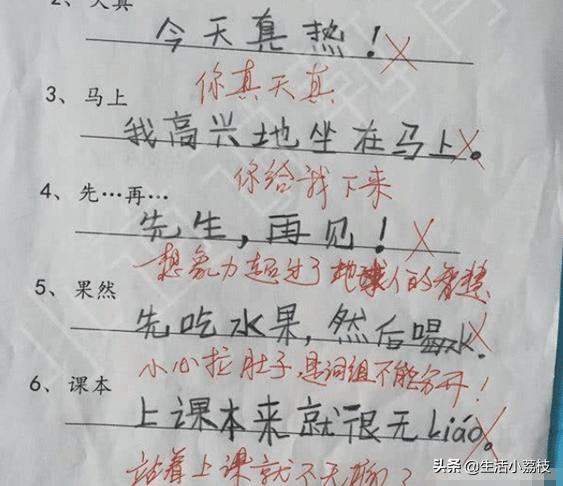 2、天真
今天真热！
你真天真
3、马上
我高兴地坐在马上。
你给我下来
4、先…再…
先生，再见！
想象力超过了地球人的智慧
5、果然
先吃水果，然后喝水。
小心拉肚子，是词组不能分开！
6、课本
上课本来就很无Liáo。
站着上课就不无聊了
头条 @生活小荔枝